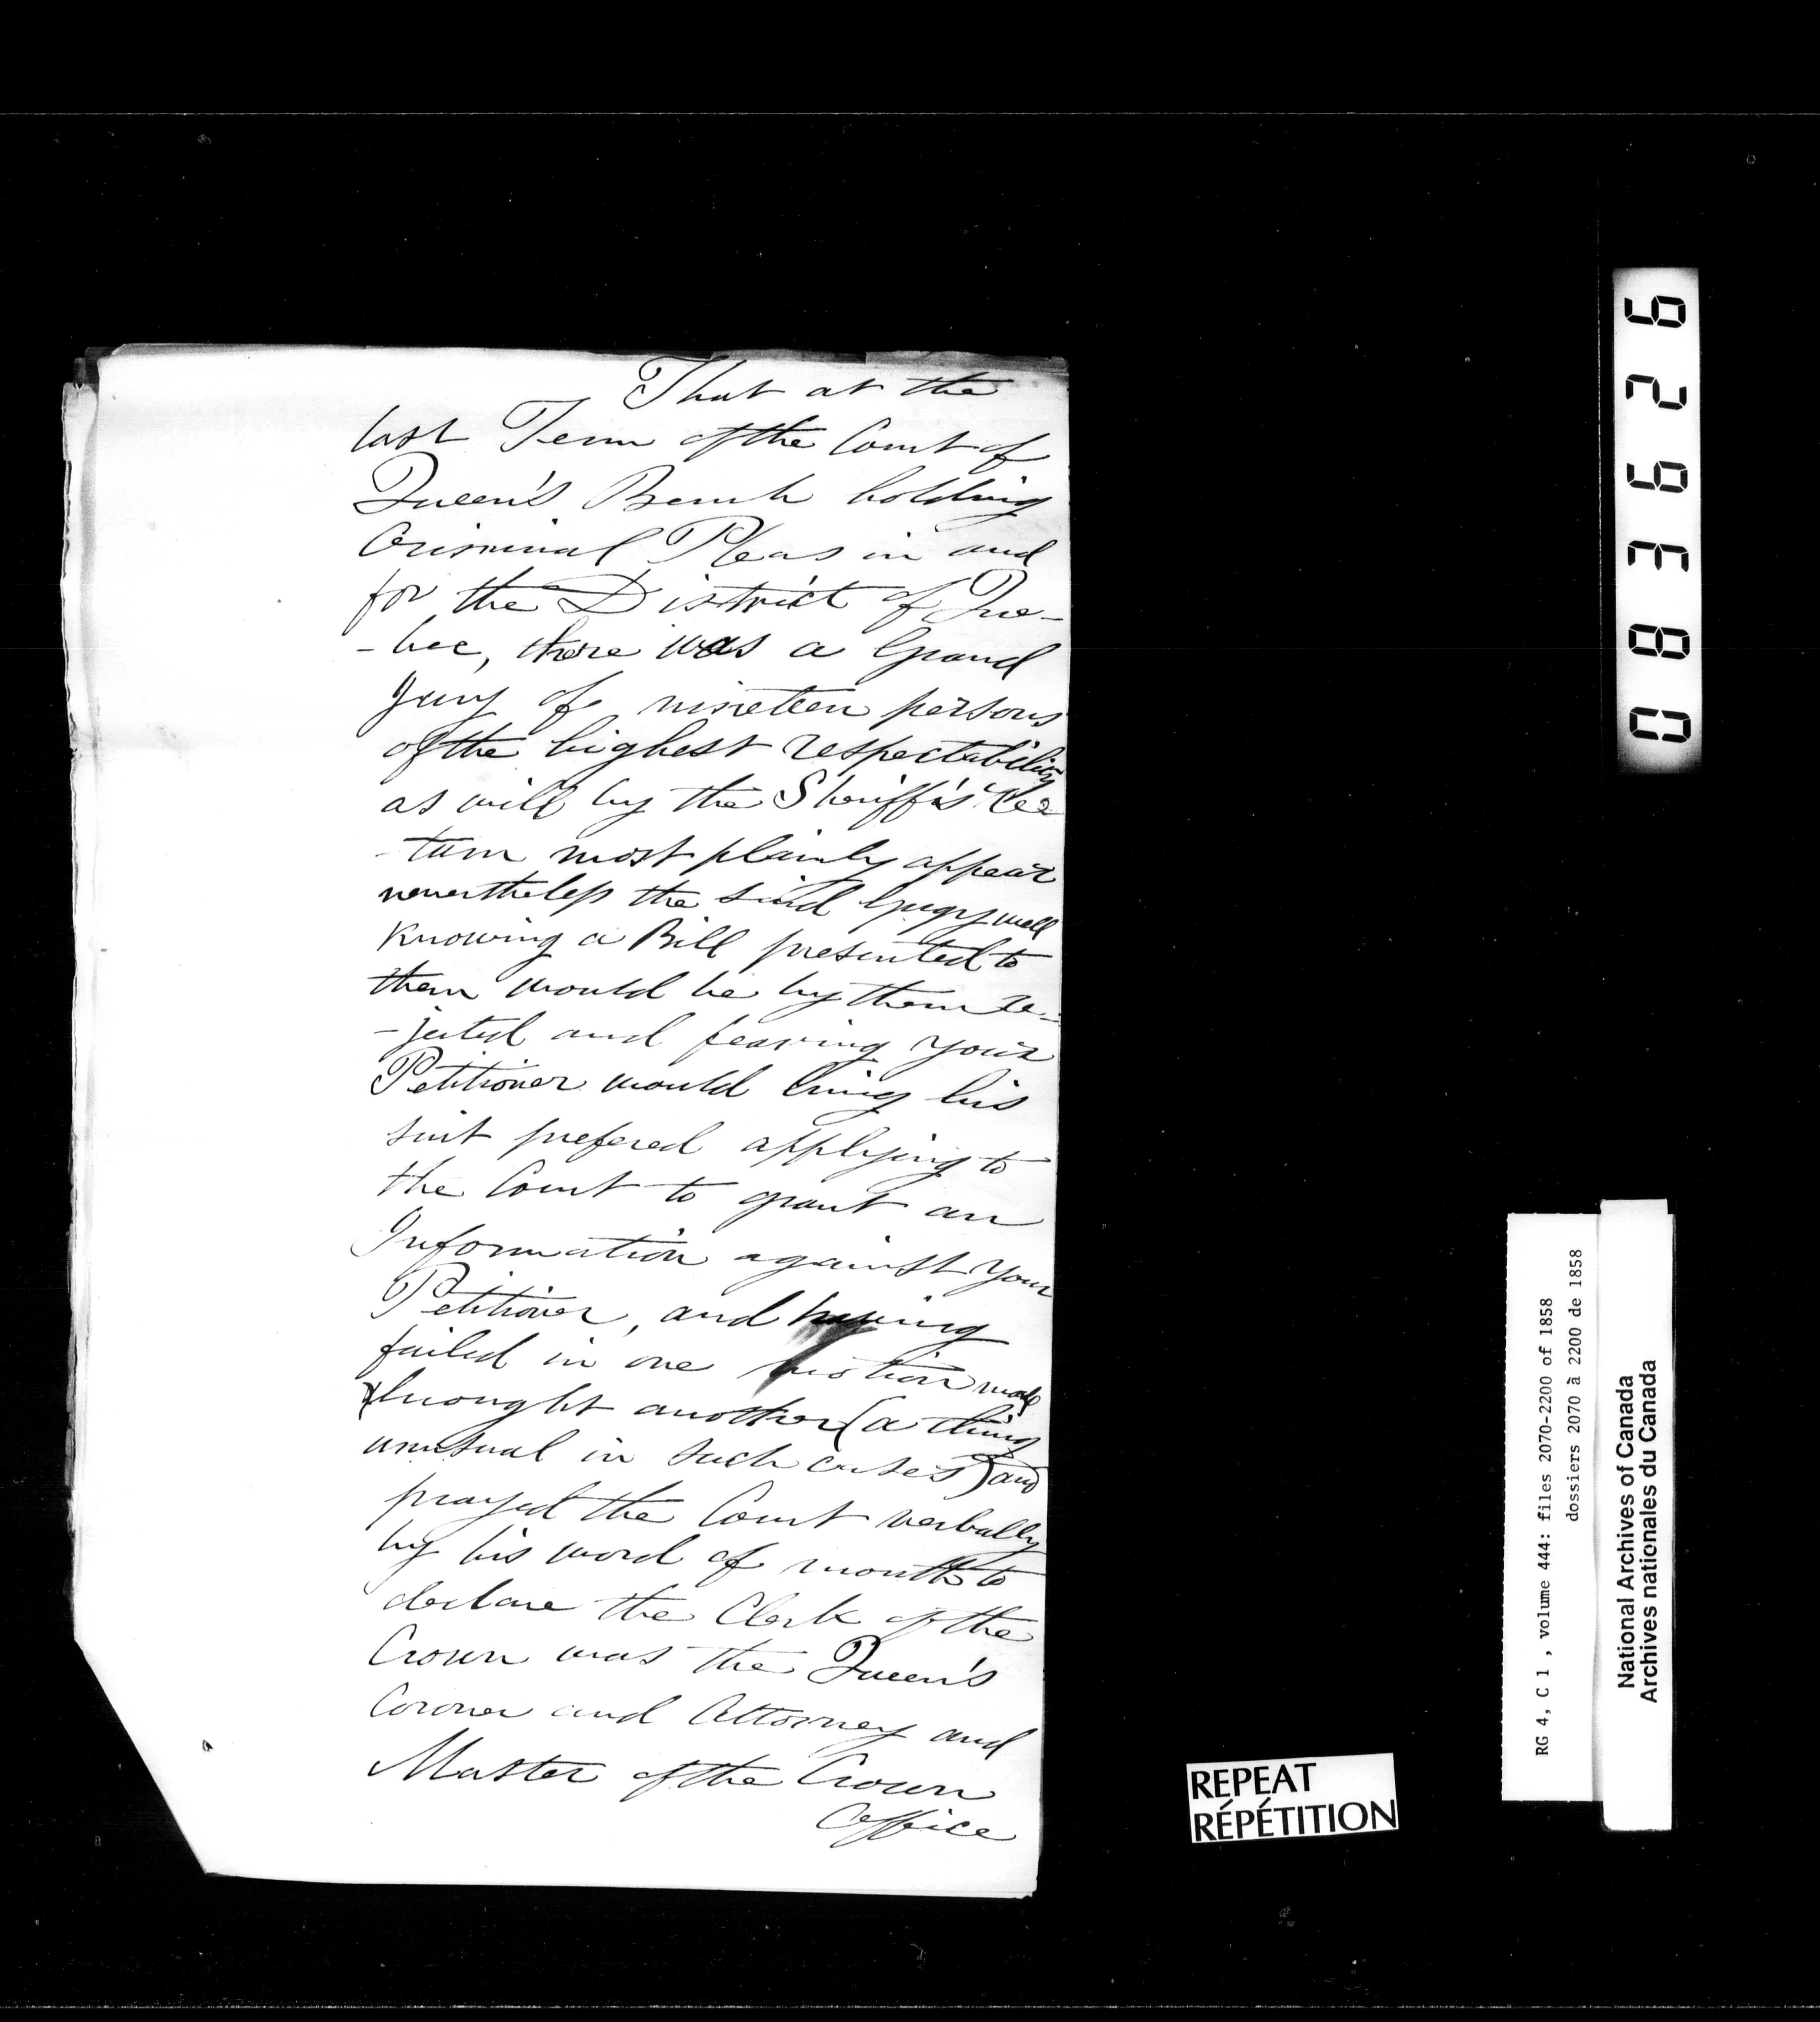 That at the
last Term of the Court of
Queen's Bench holding
Criminal Pleas in and
for the District of Que-
-bec, there was a Grand
Jury of nineteen persons
of the highest respectability
as will by the Sheriff's Re=
-turn most plainly appear
nevertheless the said Gugy well
knowing a Bill presented to
them would be by them re-
-jected and fearing your
Petitioner would bring his
suit prefered applying to
the Court to grant an
Information against your
Petitioner, and having
failed in one motion made
& brought another (a thing
unusual in such cases) and
prayed the Court verbally
by his word of mouth to
declare the Clerk of the
Crown was the Queen's
Coroner and Attorney and
Master of the Crown
Office
083626
RG 4, C 1 , volume 444: files 2070-2200 of 1858
dossiers 2070 à 2200 de 1858
National Archives of Canada
Archives nationales du Canada
REPEAT
RÉPÉTITION